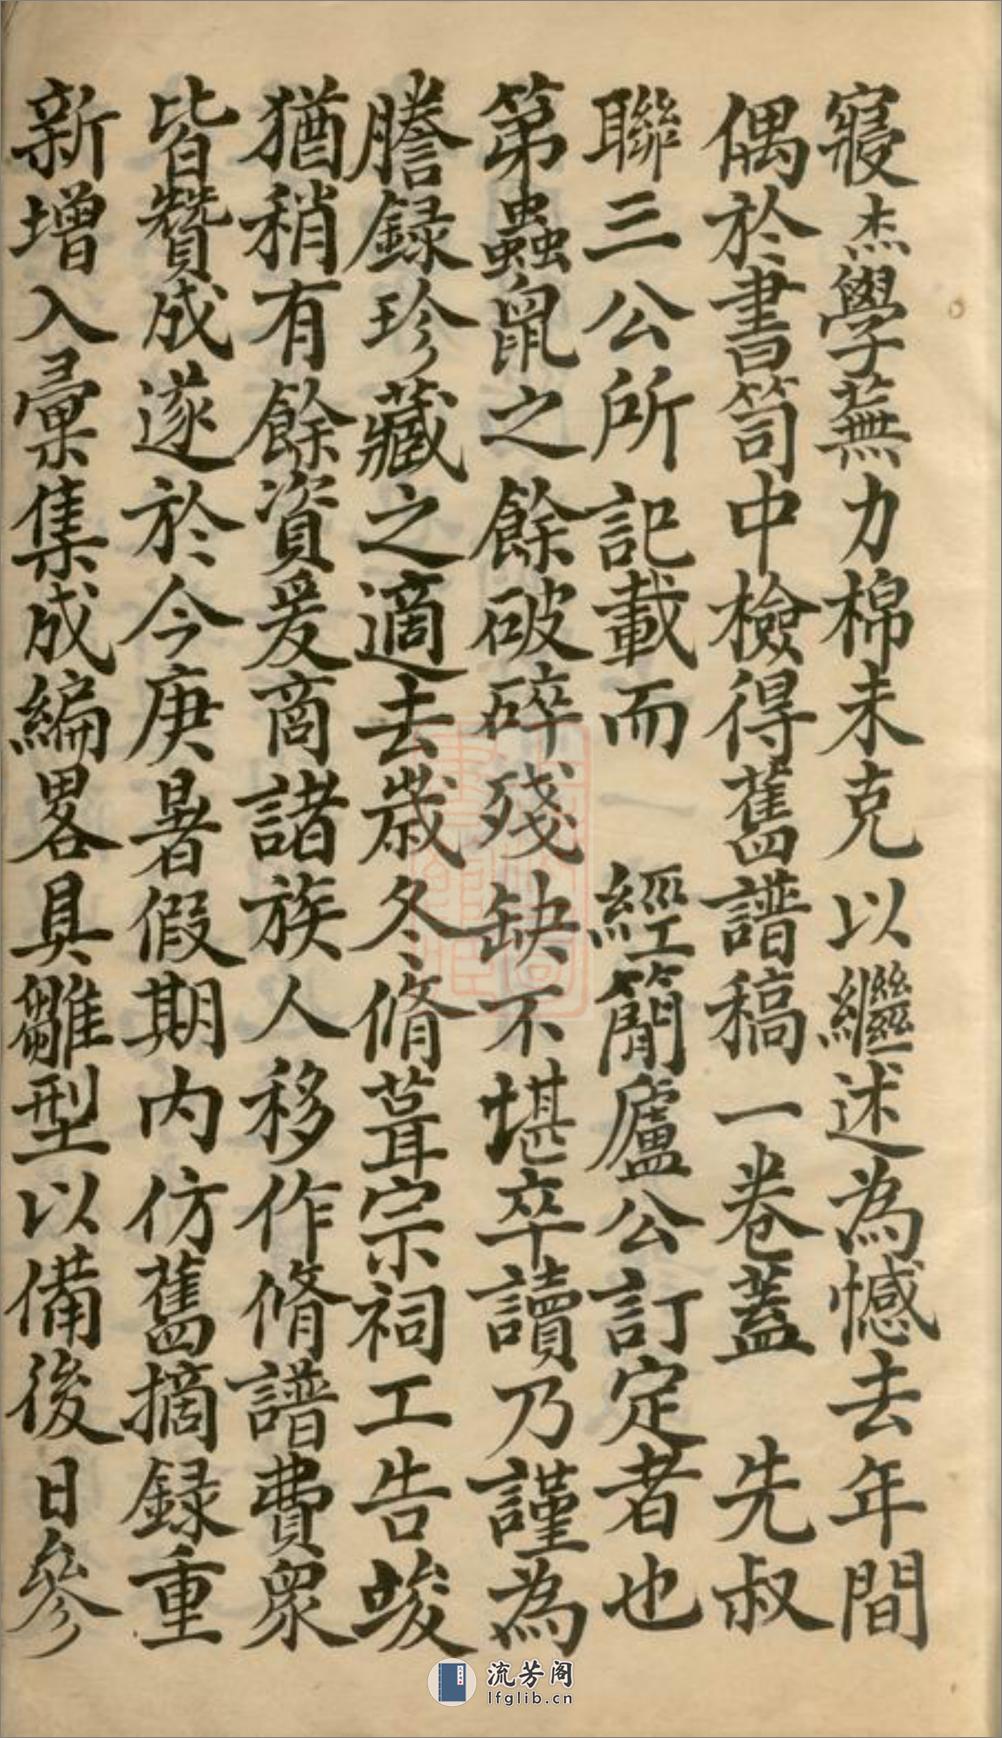 寢杰學蕪力棉未克 以繼述為憾去年間
偶於書笥中檢得舊譜稿一卷蓋 先叔
聯三公所記載而 經簡廬公訂定者也
第蟲鼠之餘破碎殘缺不堪卒讀乃謹為
謄録珍藏之適去歲冬脩葺宗祠工告竣
猶稍有餘資爰商諸族人移作脩譜費衆
皆贊成遂於今庚暑假期內仿舊摘録重
新增入彙集成編畧具雛型以備後日參
流芳阁
lfglib.cn